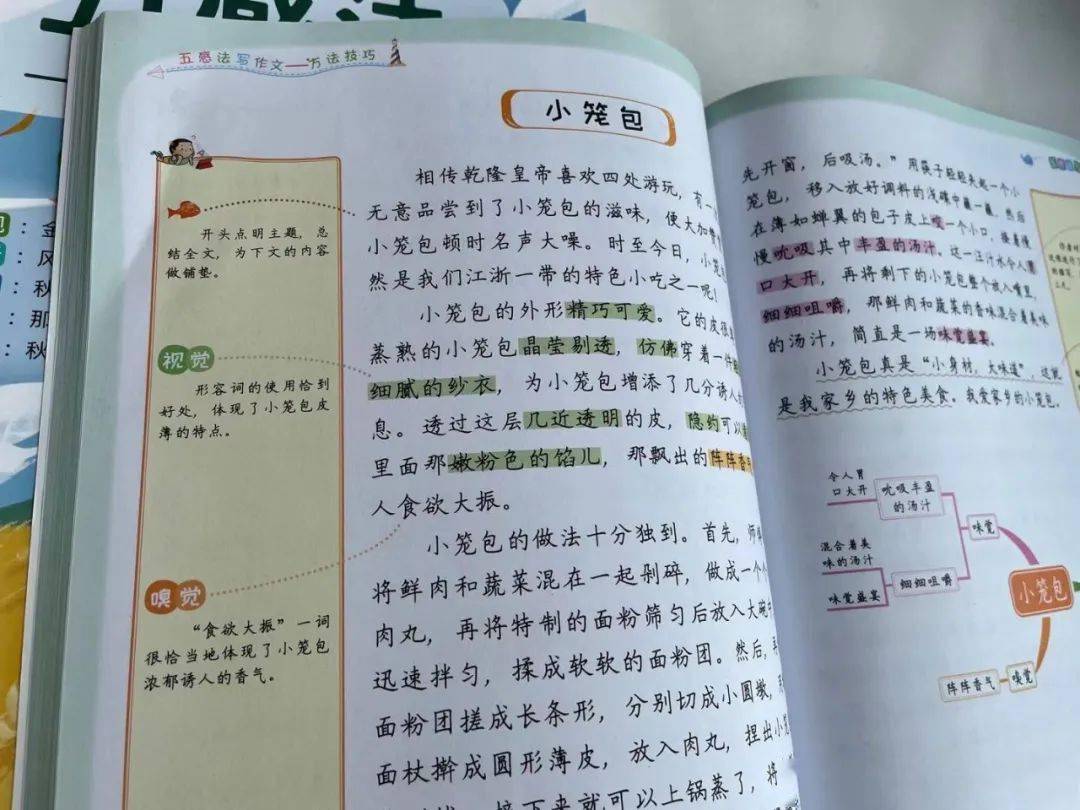 五感法写作文——方法技巧
小笼包
相传乾隆皇帝喜欢四处游玩，有一
无意品尝到了小笼包的滋味，便大加赞
小笼包顿时名声大噪。时至今日，小笼
然是我们江浙一带的特色小吃之一呢！
小笼包的外形精巧可爱。它的皮很
蒸熟的小笼包晶莹剔透，仿佛穿着一件
细腻的纱衣，为小笼包增添了几分诱人
息。透过这层几近透明的皮，隐约可以
里面那嫩粉色的馅儿，那飘出的阵阵香气
人食欲大振。
小笼包的做法十分独到。首先，师
将鲜肉和蔬菜混在一起剁碎，做成一个个
肉丸，再将特制的面粉筛匀后放入大碗中
迅速拌匀，揉成软软的面粉团。然后，再
面粉团搓成长条形，分别切成小圆墩，
面杖擀成圆形薄皮，放入肉丸，捏出小
接下来就可以上锅蒸了，将
开头点明主题，总
结全文，为下文的内容
做铺垫。
视觉
形容词的使用恰到
好处，体现了小笼包皮
薄的特点。
嗅觉
“食欲大振”一词
很恰当地体现了小笼包
浓郁诱人的香气。
先开窗，后吸汤。”用筷子轻轻夹起一个小
笼包，移入放好调料的浅碟中蘸一蘸，然后
在薄如蝉翼的包子皮上咬一个小口，接着慢
慢吮吸其中丰盈的汤汁。这一汪汁水令人胃
口大开，再将剩下的小笼包整个放入嘴里，
细细咀嚼，那鲜肉和蔬菜的香味混合着美味
的汤汁，简直是一场味觉盛宴。
小笼包真是“小身材，大味道”，这就
是我家乡的特色美食。我爱家乡的小笼包。
令人胃
口大开
吮吸丰盈
的汤汁
味觉
混合着美
味的汤汁
味觉盛宴
细细咀嚼
小笼包
阵阵香气
嗅觉
：金
：风
：秋
：那
：秋